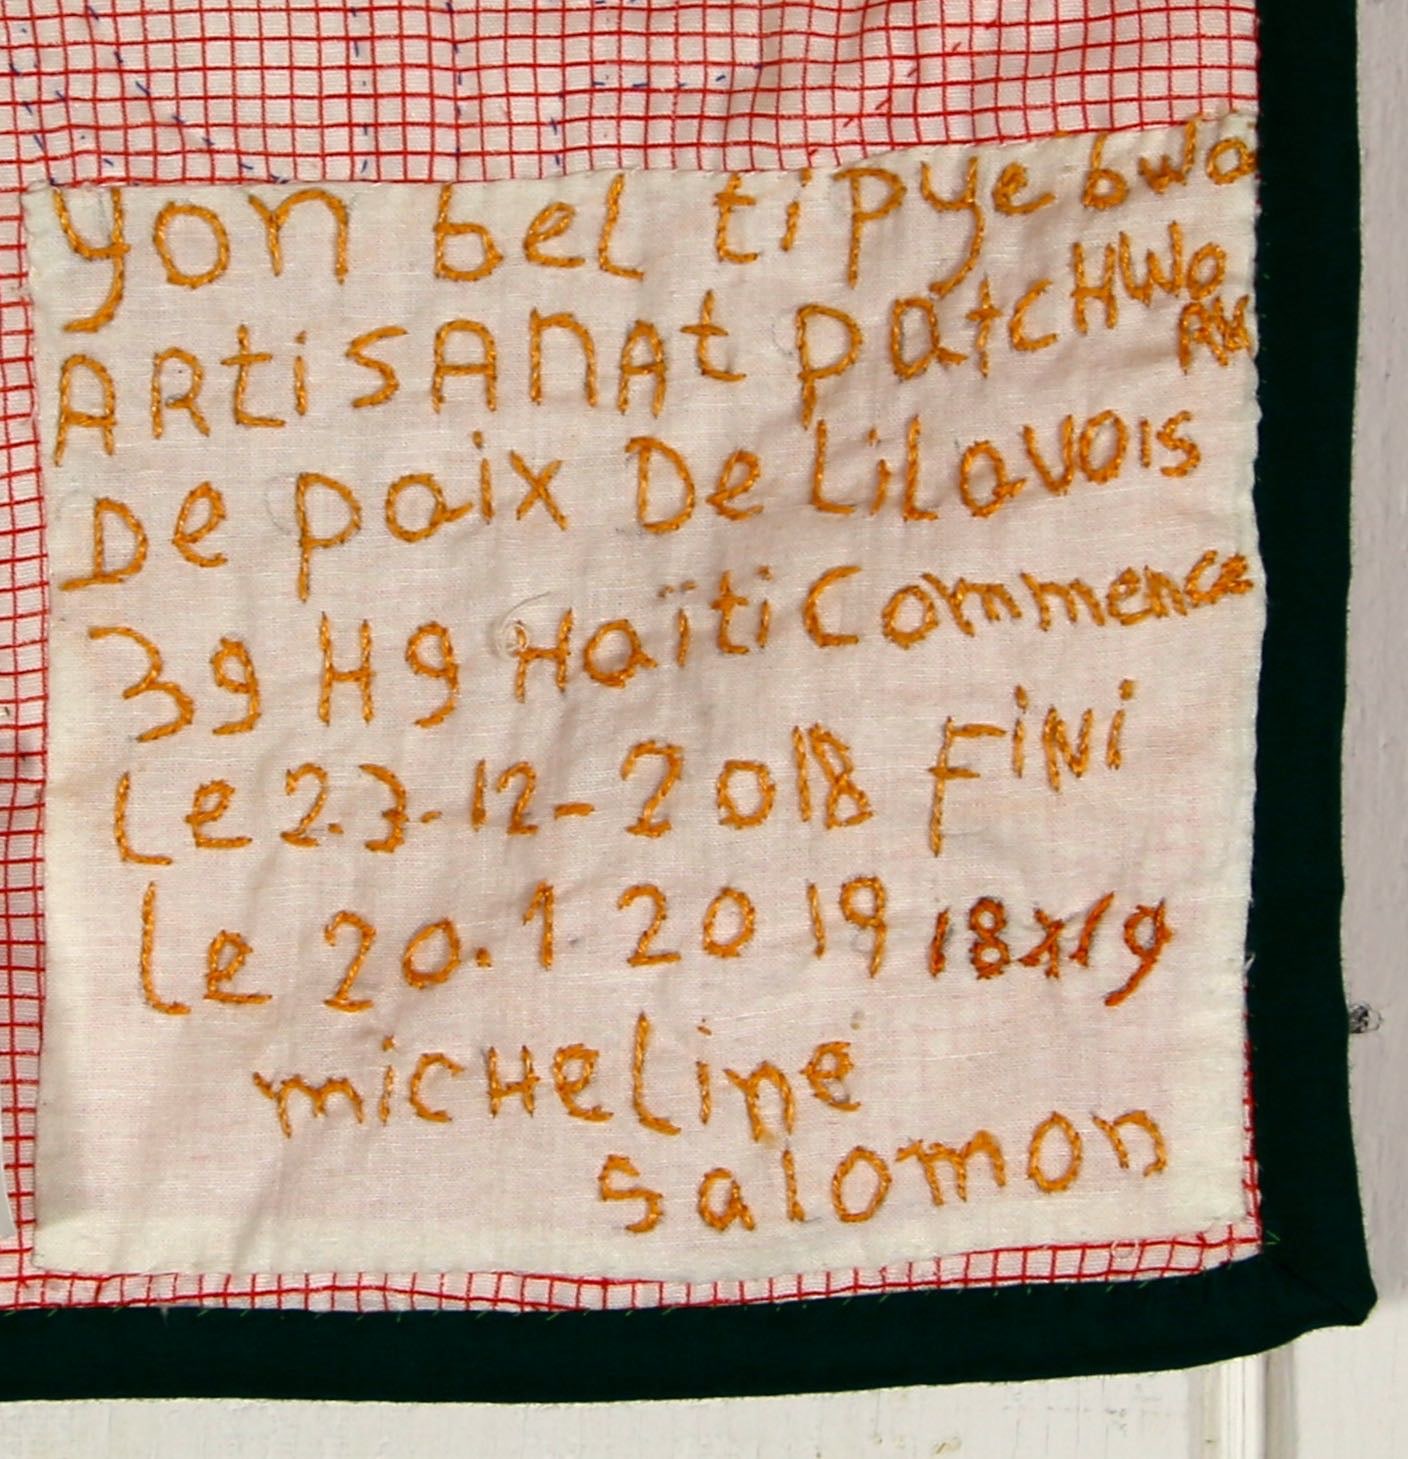 yon bel ti pye bwa
ARtisANAt patcHWo
RK
De paix De LiLavois
39 H9 Haïti Commence
Le 23-12-2018 FiNi
Le 20.1 2019 18x19
micHeline
Salomon